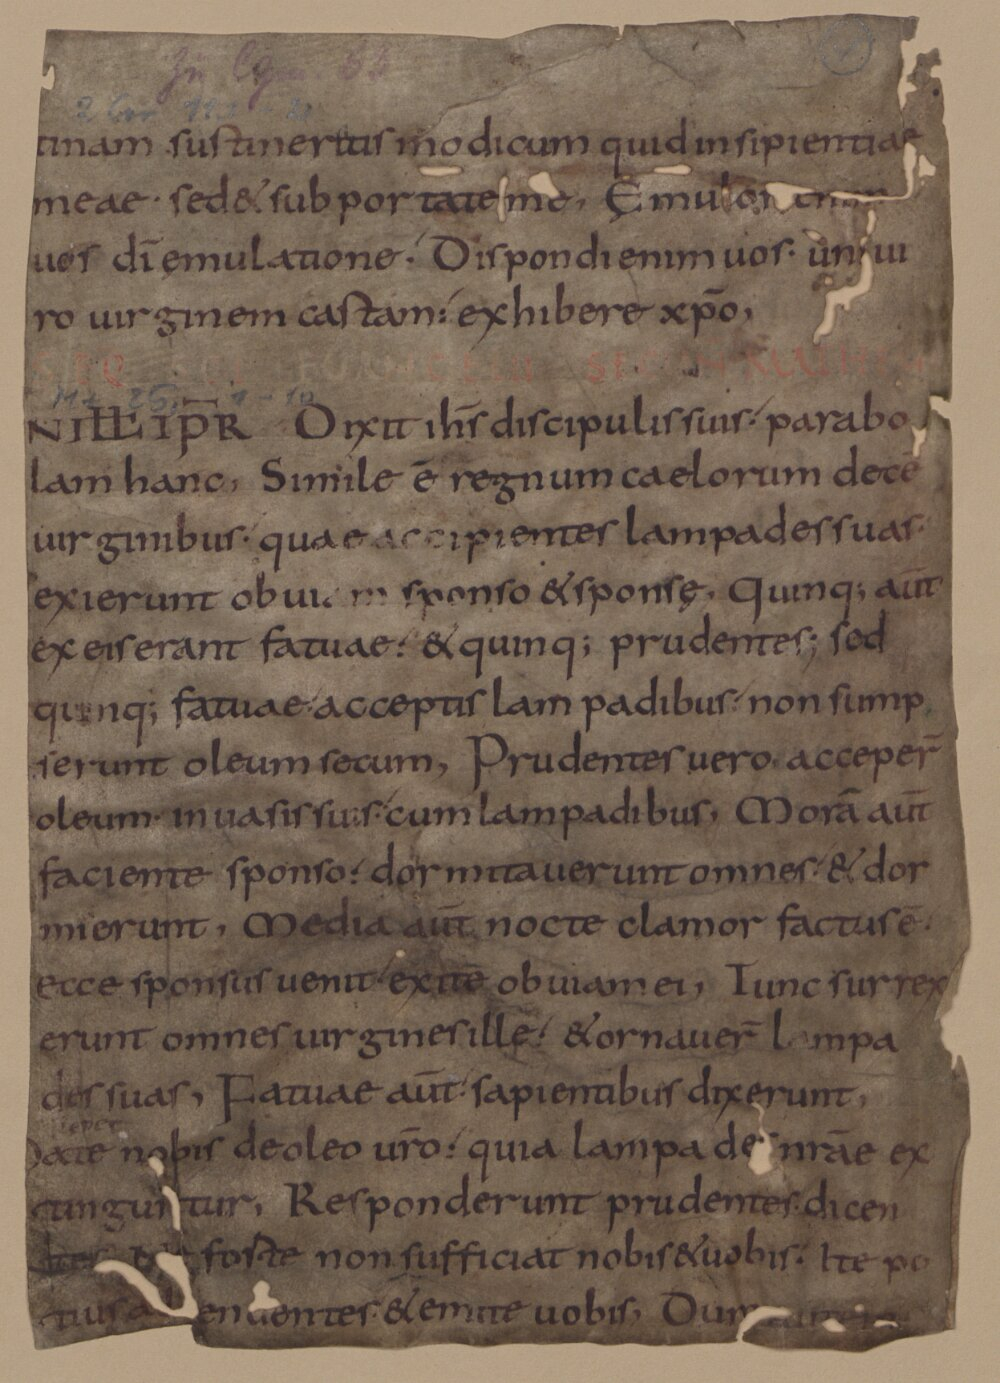 Zu Cgm. 63
2 Cor 11,1-2
tinam sustineretis modicum quid insipientiae
meae · sed & subportate me, Ęmulor enim
uos dī ęmulatione · Dispondi enim uos · uni ui
ro uirginem castam : exhibere xp̄o,
SEQ SCI EUUANGELII SEC
Mt 25, 1-10
N ILLE IP̄R Dixit ih̄s discipulis suis · parabo
lam hanc, Simile ē regnum caelorum decē
uirginibus · quae accipientes lampades suas ·
exierunt obuiam sponso & sponsę, Quinq; aūt
ex eis erant fatuae : & quinq; prudentes; sed
quinq; fatuae · acceptis lampadibus · non sump
serunt oleum secum, Prudentes uero acceper̄
oleum · in uasis suis · cum lampadibus, Morā aūt
faciente sponso : dormitauerunt omnes · & dor
mierunt, Media aūt nocte clamor factus ē ·
ecce sponsus uenit · exite obuiam ei, Tunc surrex
erunt omnes uirgines illę : & ornauer̄ lampa
des suas, Fatuae aūt · sapientibus dixerunt,
Date nobis de oleo ur̄o : quia lampades nr̄ae ex
tinguntur, Responderunt prudentes · dicen
tes · Ne forte non sufficiat nobis & uobis · Ite po
tius ad uendentes · & emite uobis, Dum